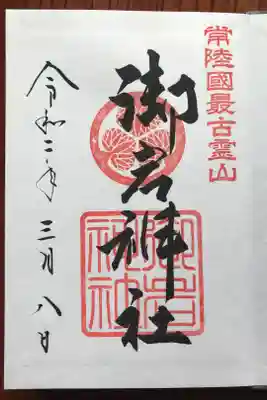 常陸國最古霊山
御岩神社
御岩神社
令和二年三月八日